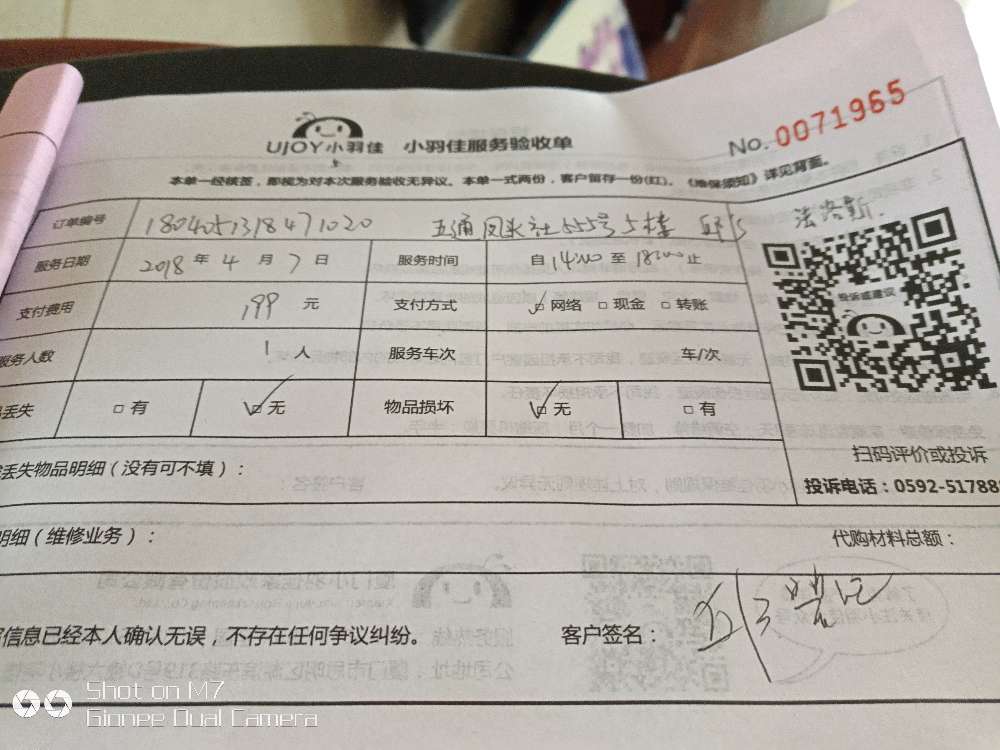 UJOY小羽佳 小羽佳服务验收单
No.0071965
本单一经核签，即视为对本次服务验收无异议。本单一式两份，客户留存一份(红)。《维保须知》详见背面。
订单编号 1804051318471020 五通凤头社555号5楼 法路新
服务日期 2018 年 4 月 7 日 服务时间 自 14:00 至 18:00 止
支付费用 199 元 支付方式 ☑网络 □现金 □转账
服务人数 1 人 服务车次 车/次
丢失 □有 ☑无 物品损坏 ☑无 □有
投诉或建议
扫码评价或投诉
投诉电话：0592-517888
丢失物品明细（没有可不填）：
明细（维修业务）： 代购材料总额：
信息已经本人确认无误，不存在任何争议纠纷。 客户签名：
Shot on M7
Gionee Dual Camera